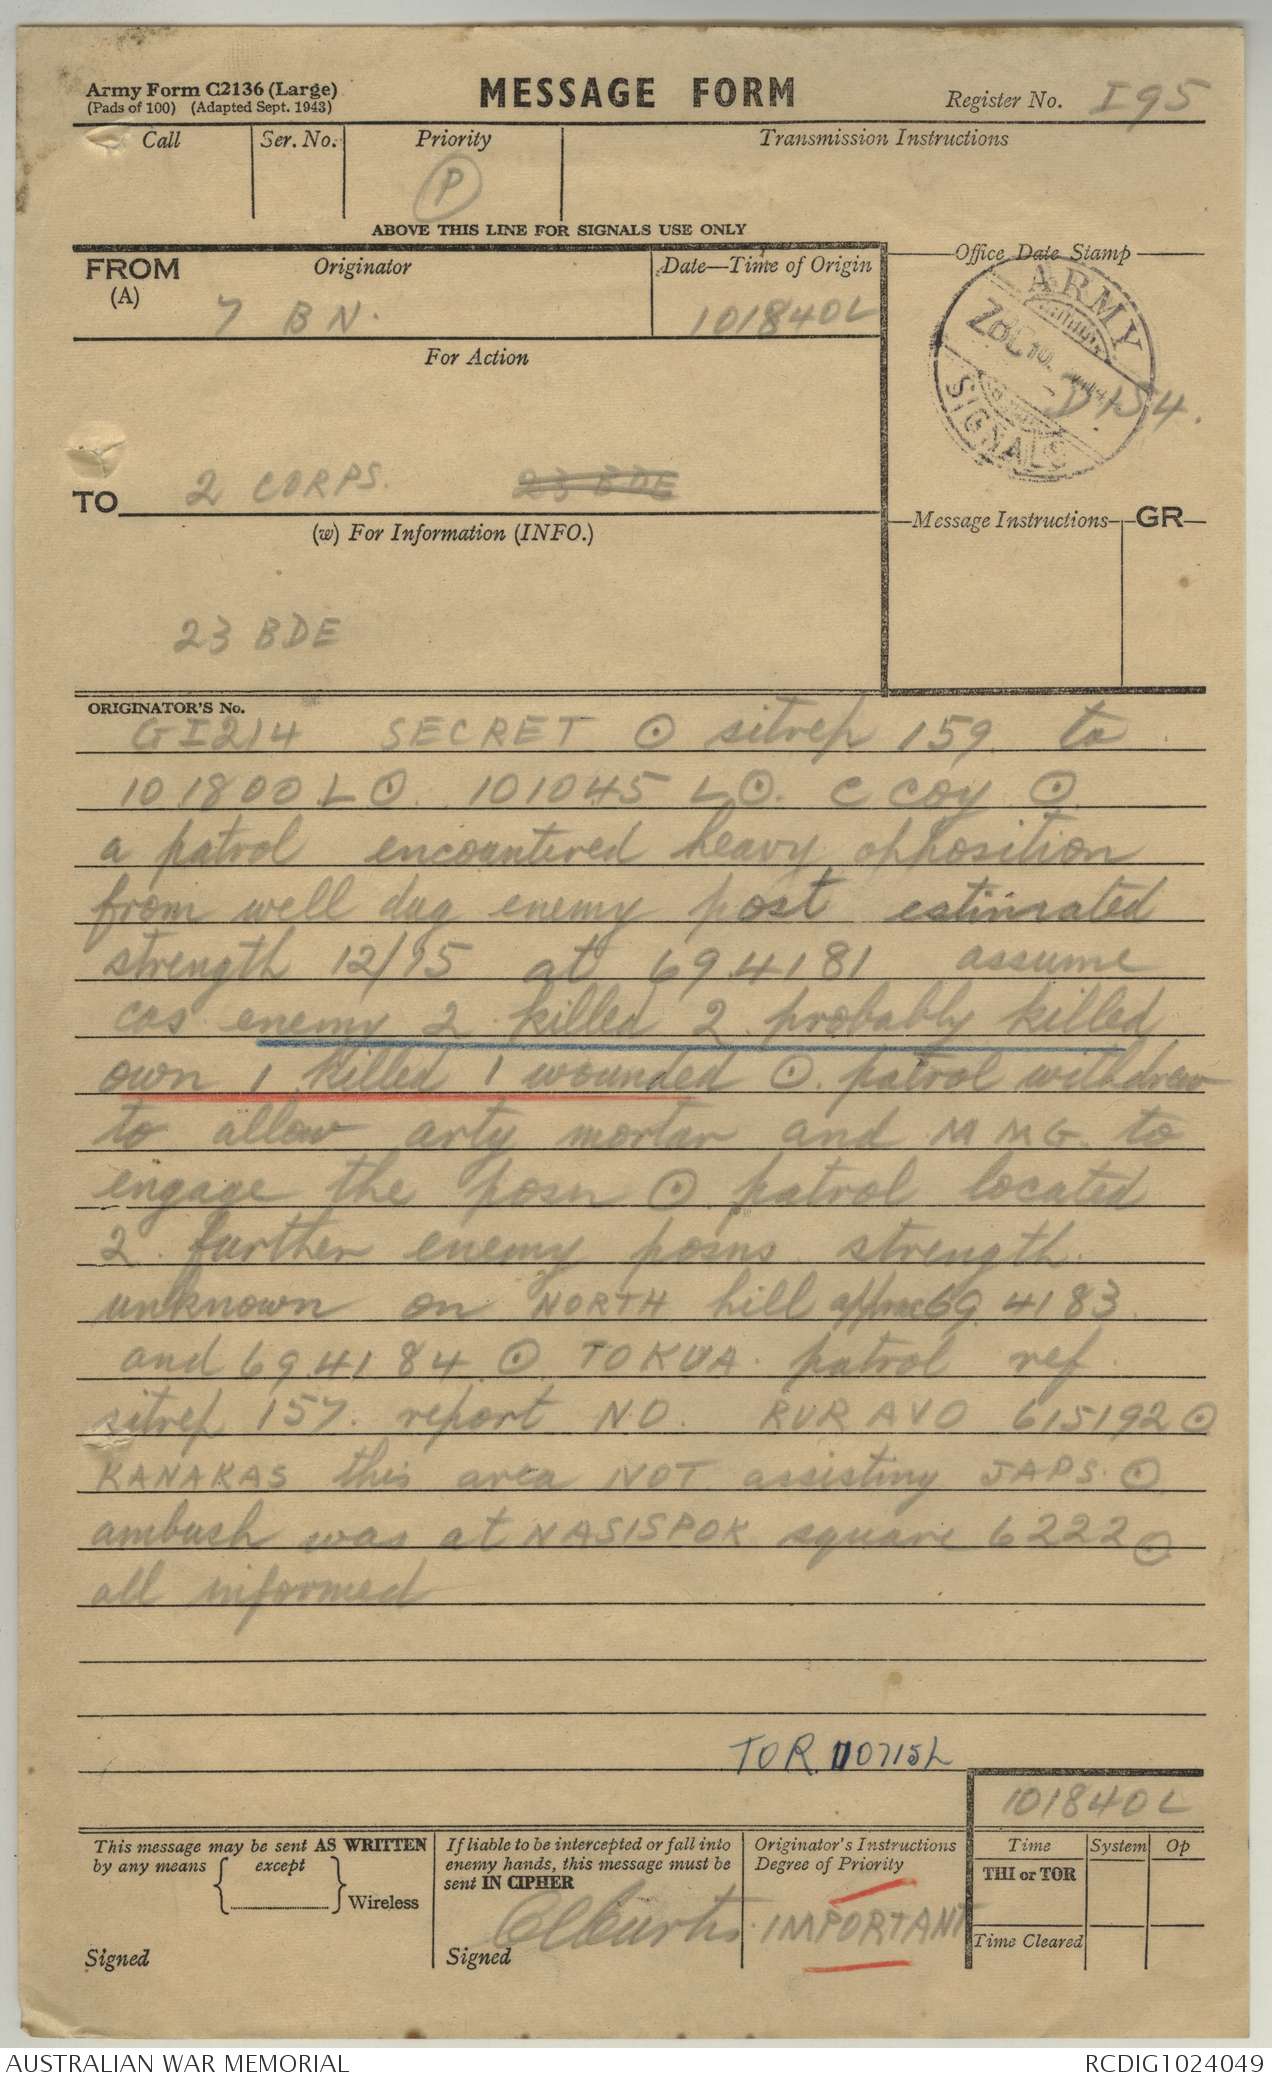 Army Form C2136 (Large)
(Pads of 100) (Adapted Sept. 1943)
MESSAGE FORM
Register No. I 95
Call
Ser. No.
Priority
Transmission Instructions
P
ABOVE THIS LINE FOR SIGNALS USE ONLY
FROM
(A)
Originator
Date—Time of Origin
Office Date Stamp
7 BN.
101840L
ARMY
SIGNALS
D154.
For Action
TO
2 CORPS. 23 BDE
(w) For Information (INFO.)
Message Instructions
GR
23 BDE
ORIGINATOR'S No.
GI214 SECRET ⊙ sitrep 159 to
101800 L ⊙. 101045 L ⊙. C COY ⊙
a patrol encountered heavy opposition
from well dug enemy post estimated
strength 12/15 at 694181 assume
cas enemy 2 killed 2 probably killed
own 1 killed 1 wounded ⊙. patrol withdrew
to allow arty mortar and MMG. to
engage the posn ⊙ patrol located
2 further enemy posns strength
unknown on NORTH hill approx 694183
and 694184 ⊙ TOKUA patrol ref
sitrep 157. report NO. RURAVO 615192 ⊙
KANAKAS this area NOT assisting JAPS. ⊙
ambush was at NASISPOK square 6222 ⊙
all informed
TOR. 110715L
101840L
This message may be sent AS WRITTEN
by any means { except } Wireless
Signed
If liable to be intercepted or fall into
enemy hands, this message must be
sent IN CIPHER
Signed
Originator's Instructions
Degree of Priority
IMPORTANT
Time
System
Op
THI or TOR
Time Cleared
AUSTRALIAN WAR MEMORIAL
RCDIG1024049